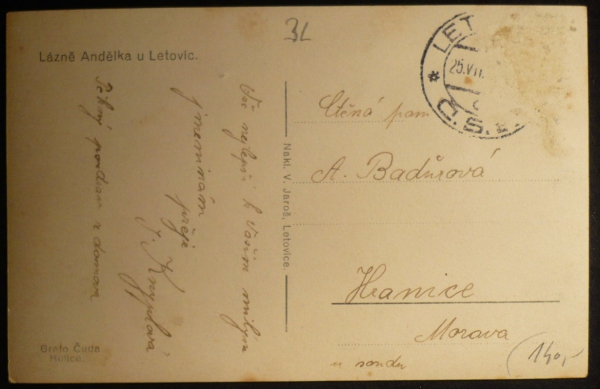 3L
Lázně Andělka u Letovic.
LET
25.VII.
Č.S.
Vše nejlepší k Vašim milým
jmeninám
přeje
J. Knyplová
Pěkný pozdrav z domova
Nakl. V. Jaroš, Letovice.
Ctěná paní
A. Badůrová
Hranice
Morava
u soudu
Grafo Čuda
Holice
140,-